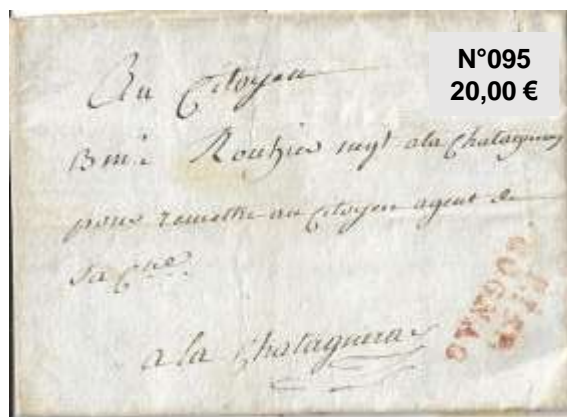 N°095
20,00 €
Au Citoyen
negt a la Chataigneraie
pour remettre au Citoyen agent de
sa Cne
a la Chataigneraie